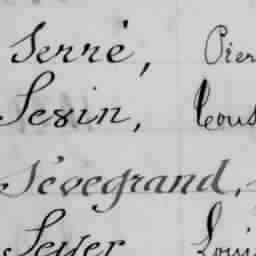 Serré, Pier
Sesin, Cous
Sévegrand,
Seyer Loui